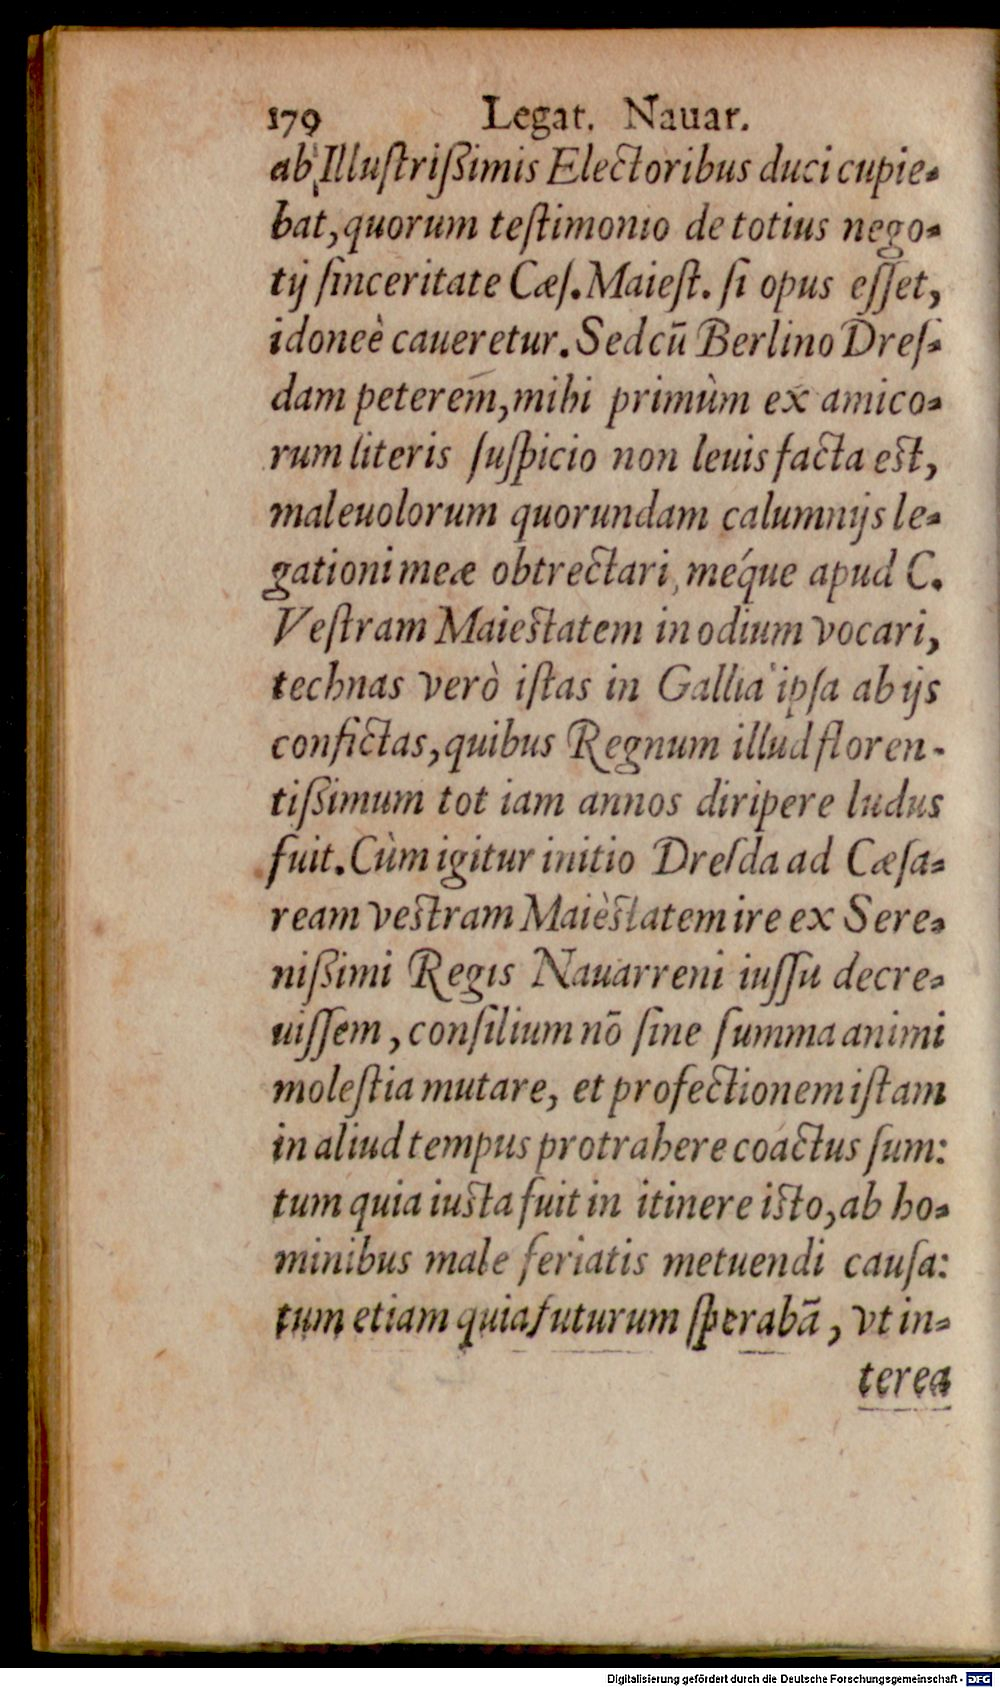 179 Legat. Nauar.
ab Illuſtriſſimis Electoribus duci cupie-
bat, quorum teſtimonio de totius nego-
tij ſinceritate Cæſ. Maieſt. ſi opus eſſet,
idoneè caueretur. Sed cũ Berlino Dreſ-
dam peterem̄, mihi primùm ex amico-
rum literis ſuſpicio non leuis facta eſt,
maleuolorum quorundam calumnijs le-
gationi meæ obtrectari, meq́ue apud C.
Veſtram Maieſtatem in odium vocari,
technas verò iſtas in Gallia ipſa ab ijs
confictas, quibus Regnum illud floren-
tißimum tot iam annos diripere ludus
fuit. Cùm igitur initio Dreſda ad Cæſa-
ream veſtram Maièſtatem ire ex Sere-
nißimi Regis Nauarreni iuſſu decre-
uiſſem, conſilium nō ſine ſumma animi
moleſtia mutare, et profectionem iſtam
in aliud tempus protrahere coactus ſum:
tum quia iuſta fuit in itinere iſto, ab ho-
minibus male feriatis metuendi cauſa:
tum etiam quia futurum ſperabā, vt in-
terea
Digitalisierung gefördert durch die Deutsche Forschungsgemeinschaft - DFG